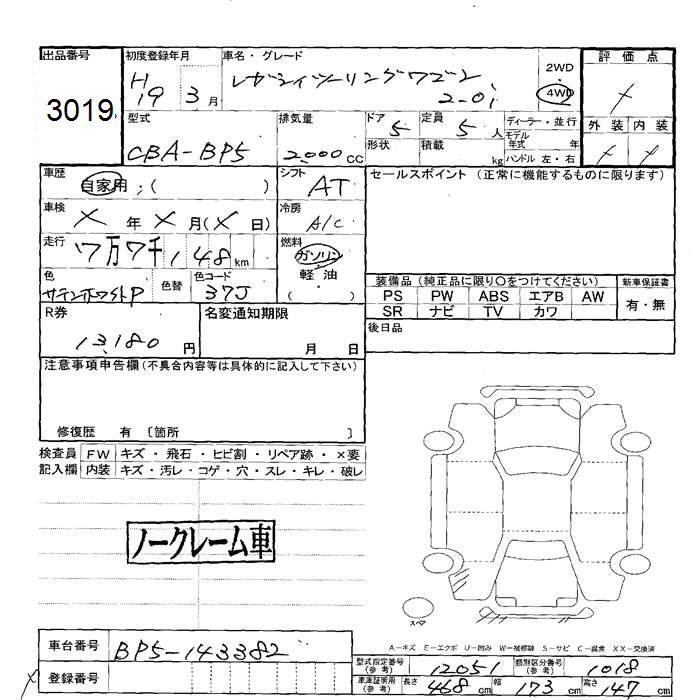 出品番号
3019
初度登録年月
H19 3月
車名・グレード
レガシィツーリングワゴン
2.0i
2WD
4WD
評価点
外装 内装
型式
CBA-BP5
排気量
2000CC
ドア 5
形状
定員 5人
積載 kg
ディーラー・並行
モデル年式 年
ハンドル 左・右
車歴
自家用 ; ( )
シフト
AT
セールスポイント (正常に機能するものに限ります)
車検
X年X月(X日)
冷房
A/C
走行
7万7千148km
燃料
ガソリン
軽油
( )
色
サテンホワイトP
色替
色コード
37J
装備品 (純正品に限り〇をつけてください)
PS PW ABS エアB AW
SR ナビ TV カワ
新車保証書
有・無
後日品
R券
13,180円
名変通知期限
月 日
注意事項申告欄(不具合内容等は具体的に記入して下さい)
修復歴 有 〔箇所 〕
検査員記入欄
FW キズ・飛石・ヒビ割・リペア跡・×要
内装 キズ・汚レ・コゲ・穴・スレ・キレ・破レ
ノークレーム車
スペア
A−キズ E−エクボ U−凹み W−補修跡 S−サビ C−腐食 XX−交換済
車台番号
BP5-143382
登録番号
型式指定番号(参考) 12051
類別区分番号(参考) 1018
車庫証明用(参考) 長さ 468cm 幅 173cm 高さ 147cm